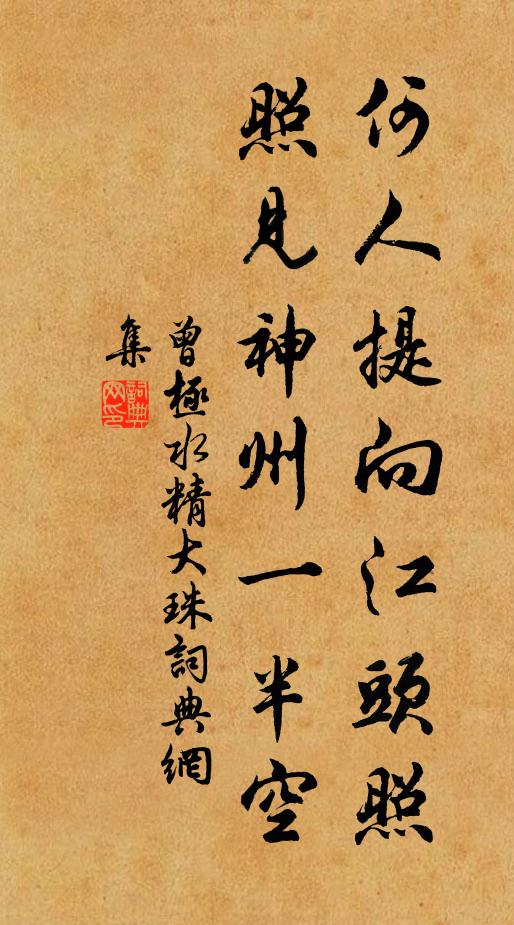 何人提向江頭照
照見神州一半空
曾極水精大珠詞典網
集
詞典
网印